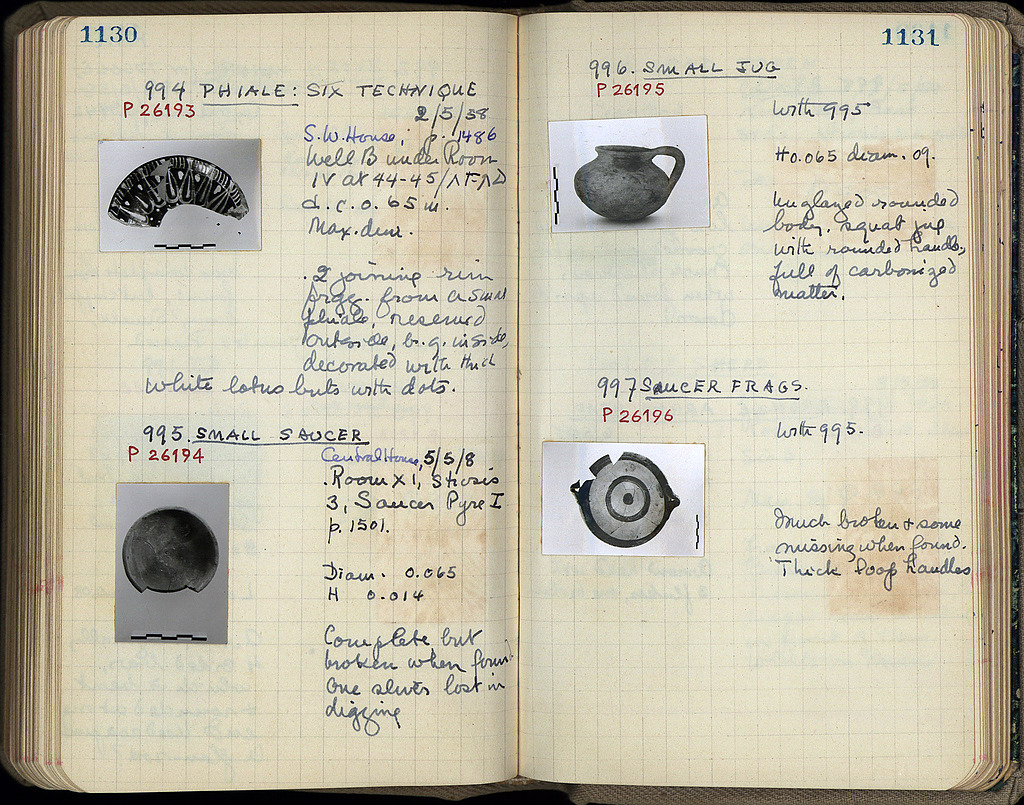 1130
994 PHIALE: SIX TECHNIQUE
P 26193
2/5/58
S.W. House, p. 1486
Well B under Room
IV at 44-45/ΛΓ-ΛΔ
d. c. 0.65 m.
Max. dim.
. 2 joining rim
frgs. from a small
phiale, reserved
outside, b.g. inside,
decorated with thick
white lotus buts with dots.
995. SMALL SAUCER
P 26194
Central House, 5/5/8
Room XI, Strosis
3, Saucer Pyre I
p. 1501.
Diam. 0.065
H 0.014
Complete but
broken when found
One sliver lost in
digging
1131
996. SMALL JUG
P 26195
With 995
H 0.065 diam. .09.
Unglazed rounded
body. squat jug
with rounded handle,
full of carbonized
matter.
997 SAUCER FRAGS.
P 26196
With 995.
Much broken & some
missing when found.
Thick loop handles